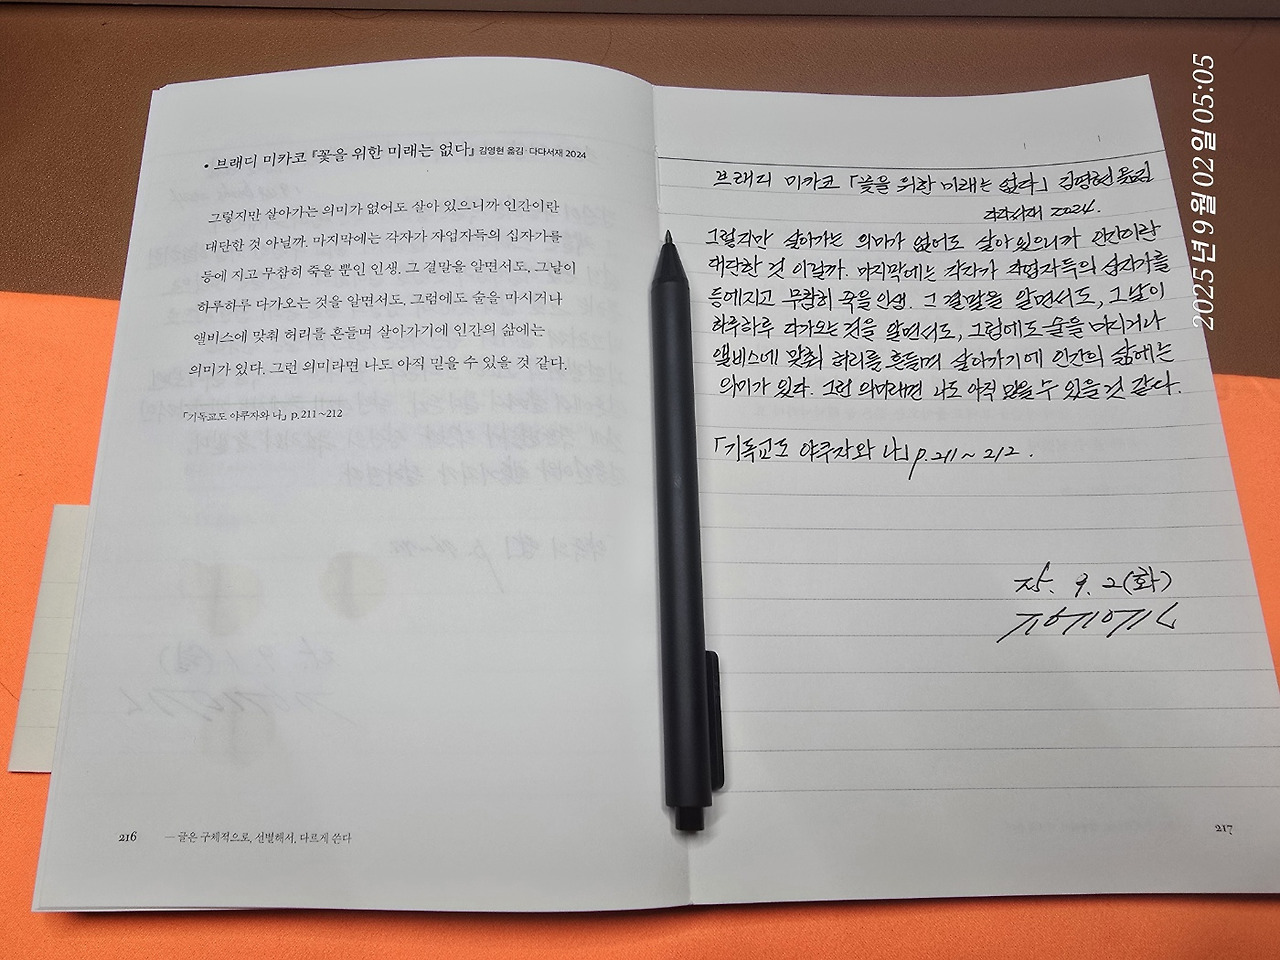 • 브래디 미카코 『꽃을 위한 미래는 없다』 김영현 옮김·다다서재 2024
그렇지만 살아가는 의미가 없어도 살아 있으니까 인간이란
대단한 것 아닐까. 마지막에는 각자가 자업자득의 십자가를
등에 지고 무참히 죽을 뿐인 인생. 그 결말을 알면서도, 그날이
하루하루 다가오는 것을 알면서도, 그럼에도 술을 마시거나
앨비스에 맞춰 허리를 흔들며 살아가기에 인간의 삶에는
의미가 있다. 그런 의미라면 나도 아직 믿을 수 있을 것 같다.
「기독교도 야쿠자와 나」 p.211~212
216
— 글은 구체적으로, 선별해서, 다르게 쓴다
브래디 미카코 「꽃을 위한 미래는 없다」 김영현 옮김
다다서재 2024.
그렇지만 살아가는 의미가 없어도 살아있으니까 인간이란
대단한 것 이닐까. 마지막에는 각자가 자업자득의 십자가를
등에지고 무참히 죽을 인생. 그 결말을 알면서도, 그날이
하루하루 다가오는 것을 알면서도, 그럼에도 술을 마시거나
앨비스에 맞춰 허리를 흔들며 살아가기에 인간의 삶에는
의미가 있다. 그런 의미래면 나도 아직 믿을 수 있을 것 같다.
「기독교도 야쿠자와 나」 p.211~212.
25. 9. 2(화)
217
2025년 9월 02일 05:05